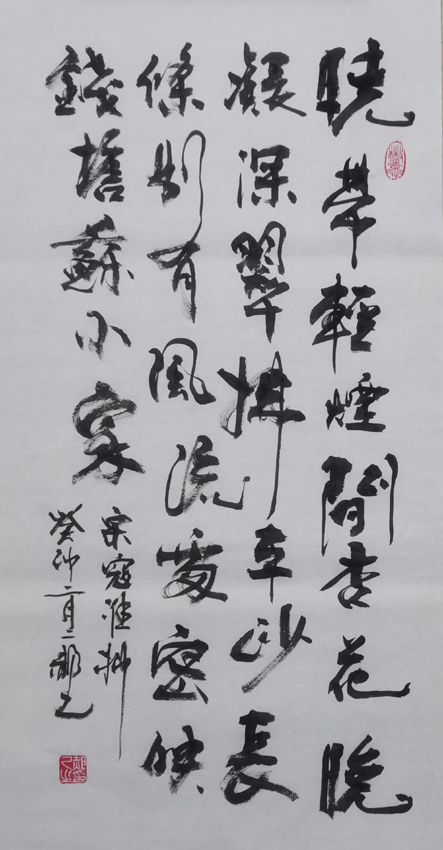 曉帶輕煙間杏花晚
凝深翠拂平沙長
條別有風流處密映
錢塘蘇小家
宋寇准柳
癸卯二月二